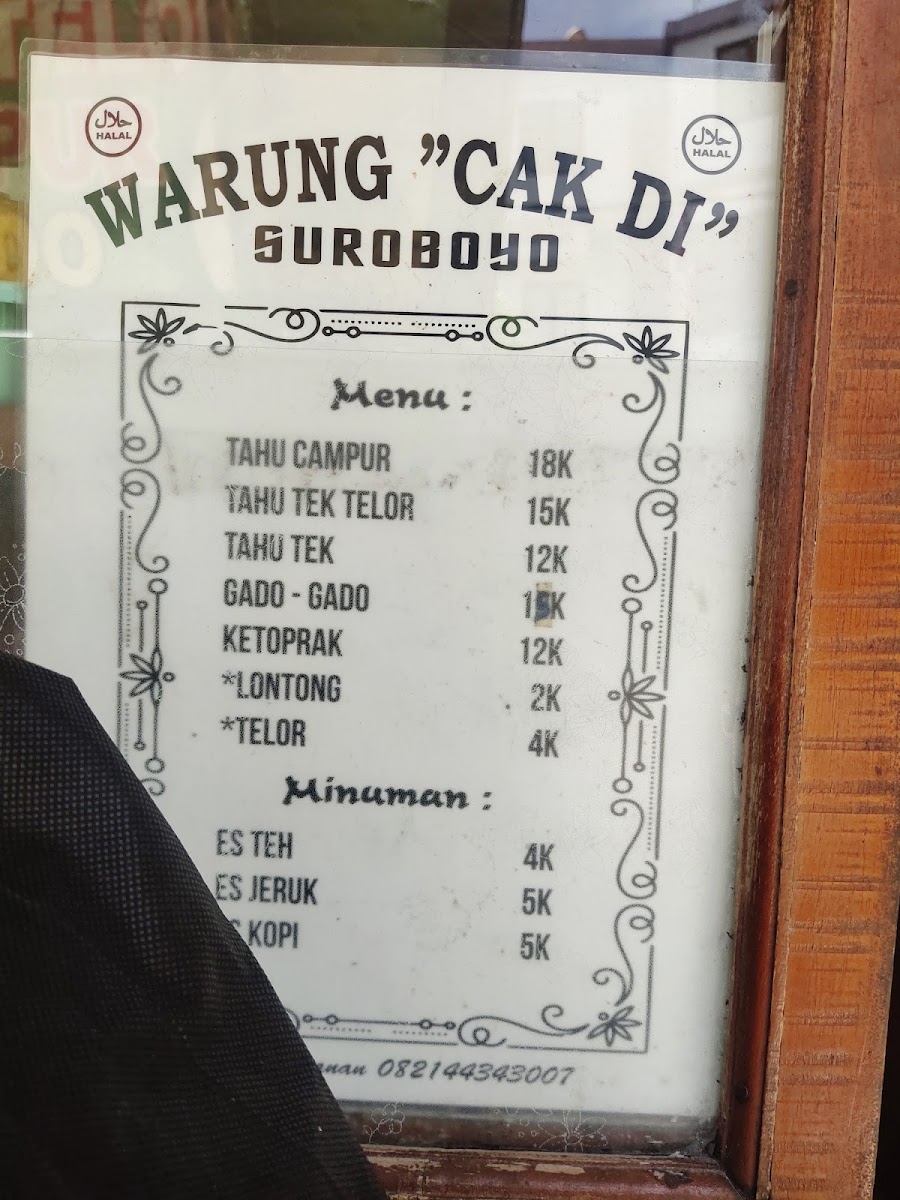 حلال
HALAL
حلال
HALAL
WARUNG "CAK DI"
SUROBOYO
Menu :
TAHU CAMPUR 18K
TAHU TEK TELOR 15K
TAHU TEK 12K
GADO - GADO 15K
KETOPRAK 12K
*LONTONG 2K
*TELOR 4K
Minuman :
ES TEH 4K
ES JERUK 5K
KOPI 5K
082144343007